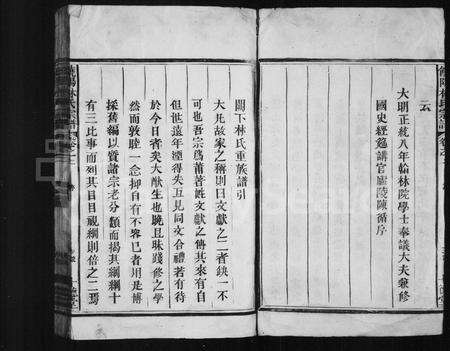 云
大明正統八年翰林院學士奉議大夫兼修
國史經筵講官廬陵陳循序
闕下林氏重族譜引
大凡故家之稱則曰文獻之二者缺一不
可也吾宗為莆著姓文獻之傳其來有自
但世遠年湮得失互見同文合禮若有待
於今日者矣大猷生也晚且昧踐修之學
而敦睦一念抑自有不容已者用是博
採舊編以質諸宗老分類而揭其綱綱十
有三比事而列其目目視綱則倍之二焉